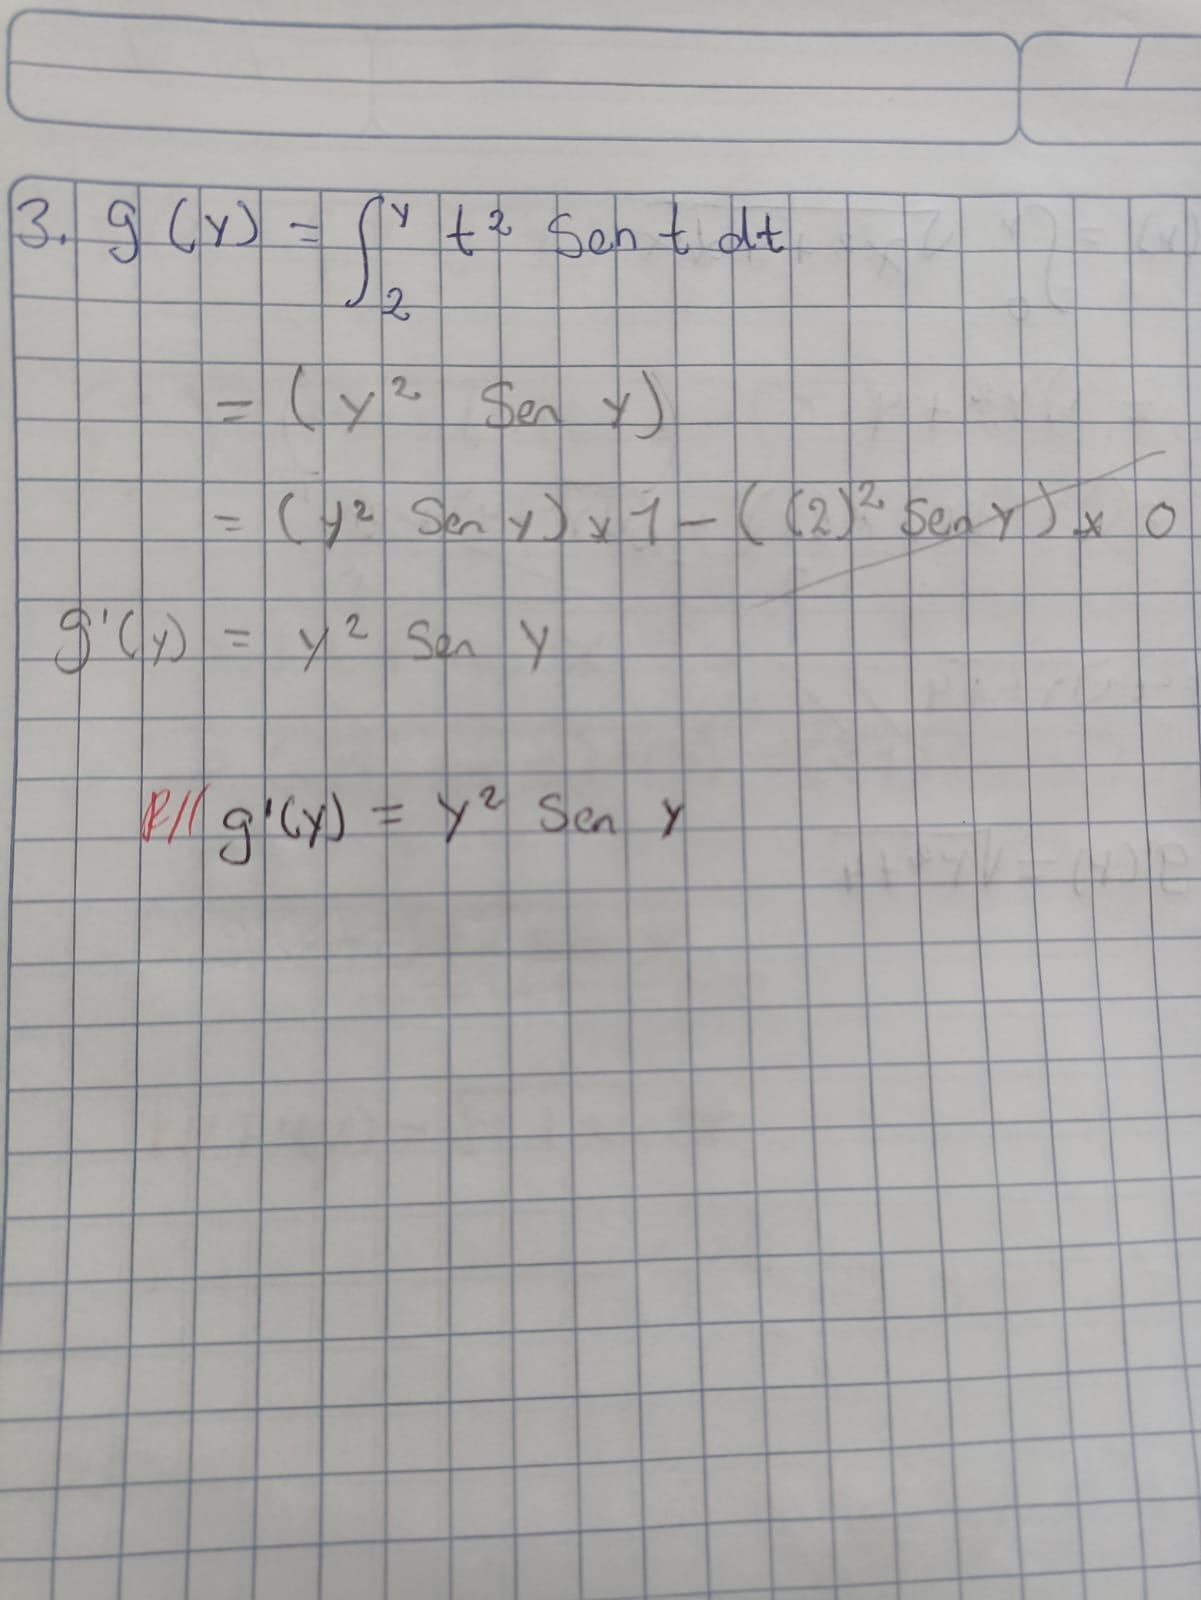 3. g (y) = ∫₂^y t² Sen t dt
= (y² Sen y)
= (y² Sen y) x 1 - ((2)² Sen y) x 0
g'(y) = y² Sen y
R// g'(y) = y² Sen y